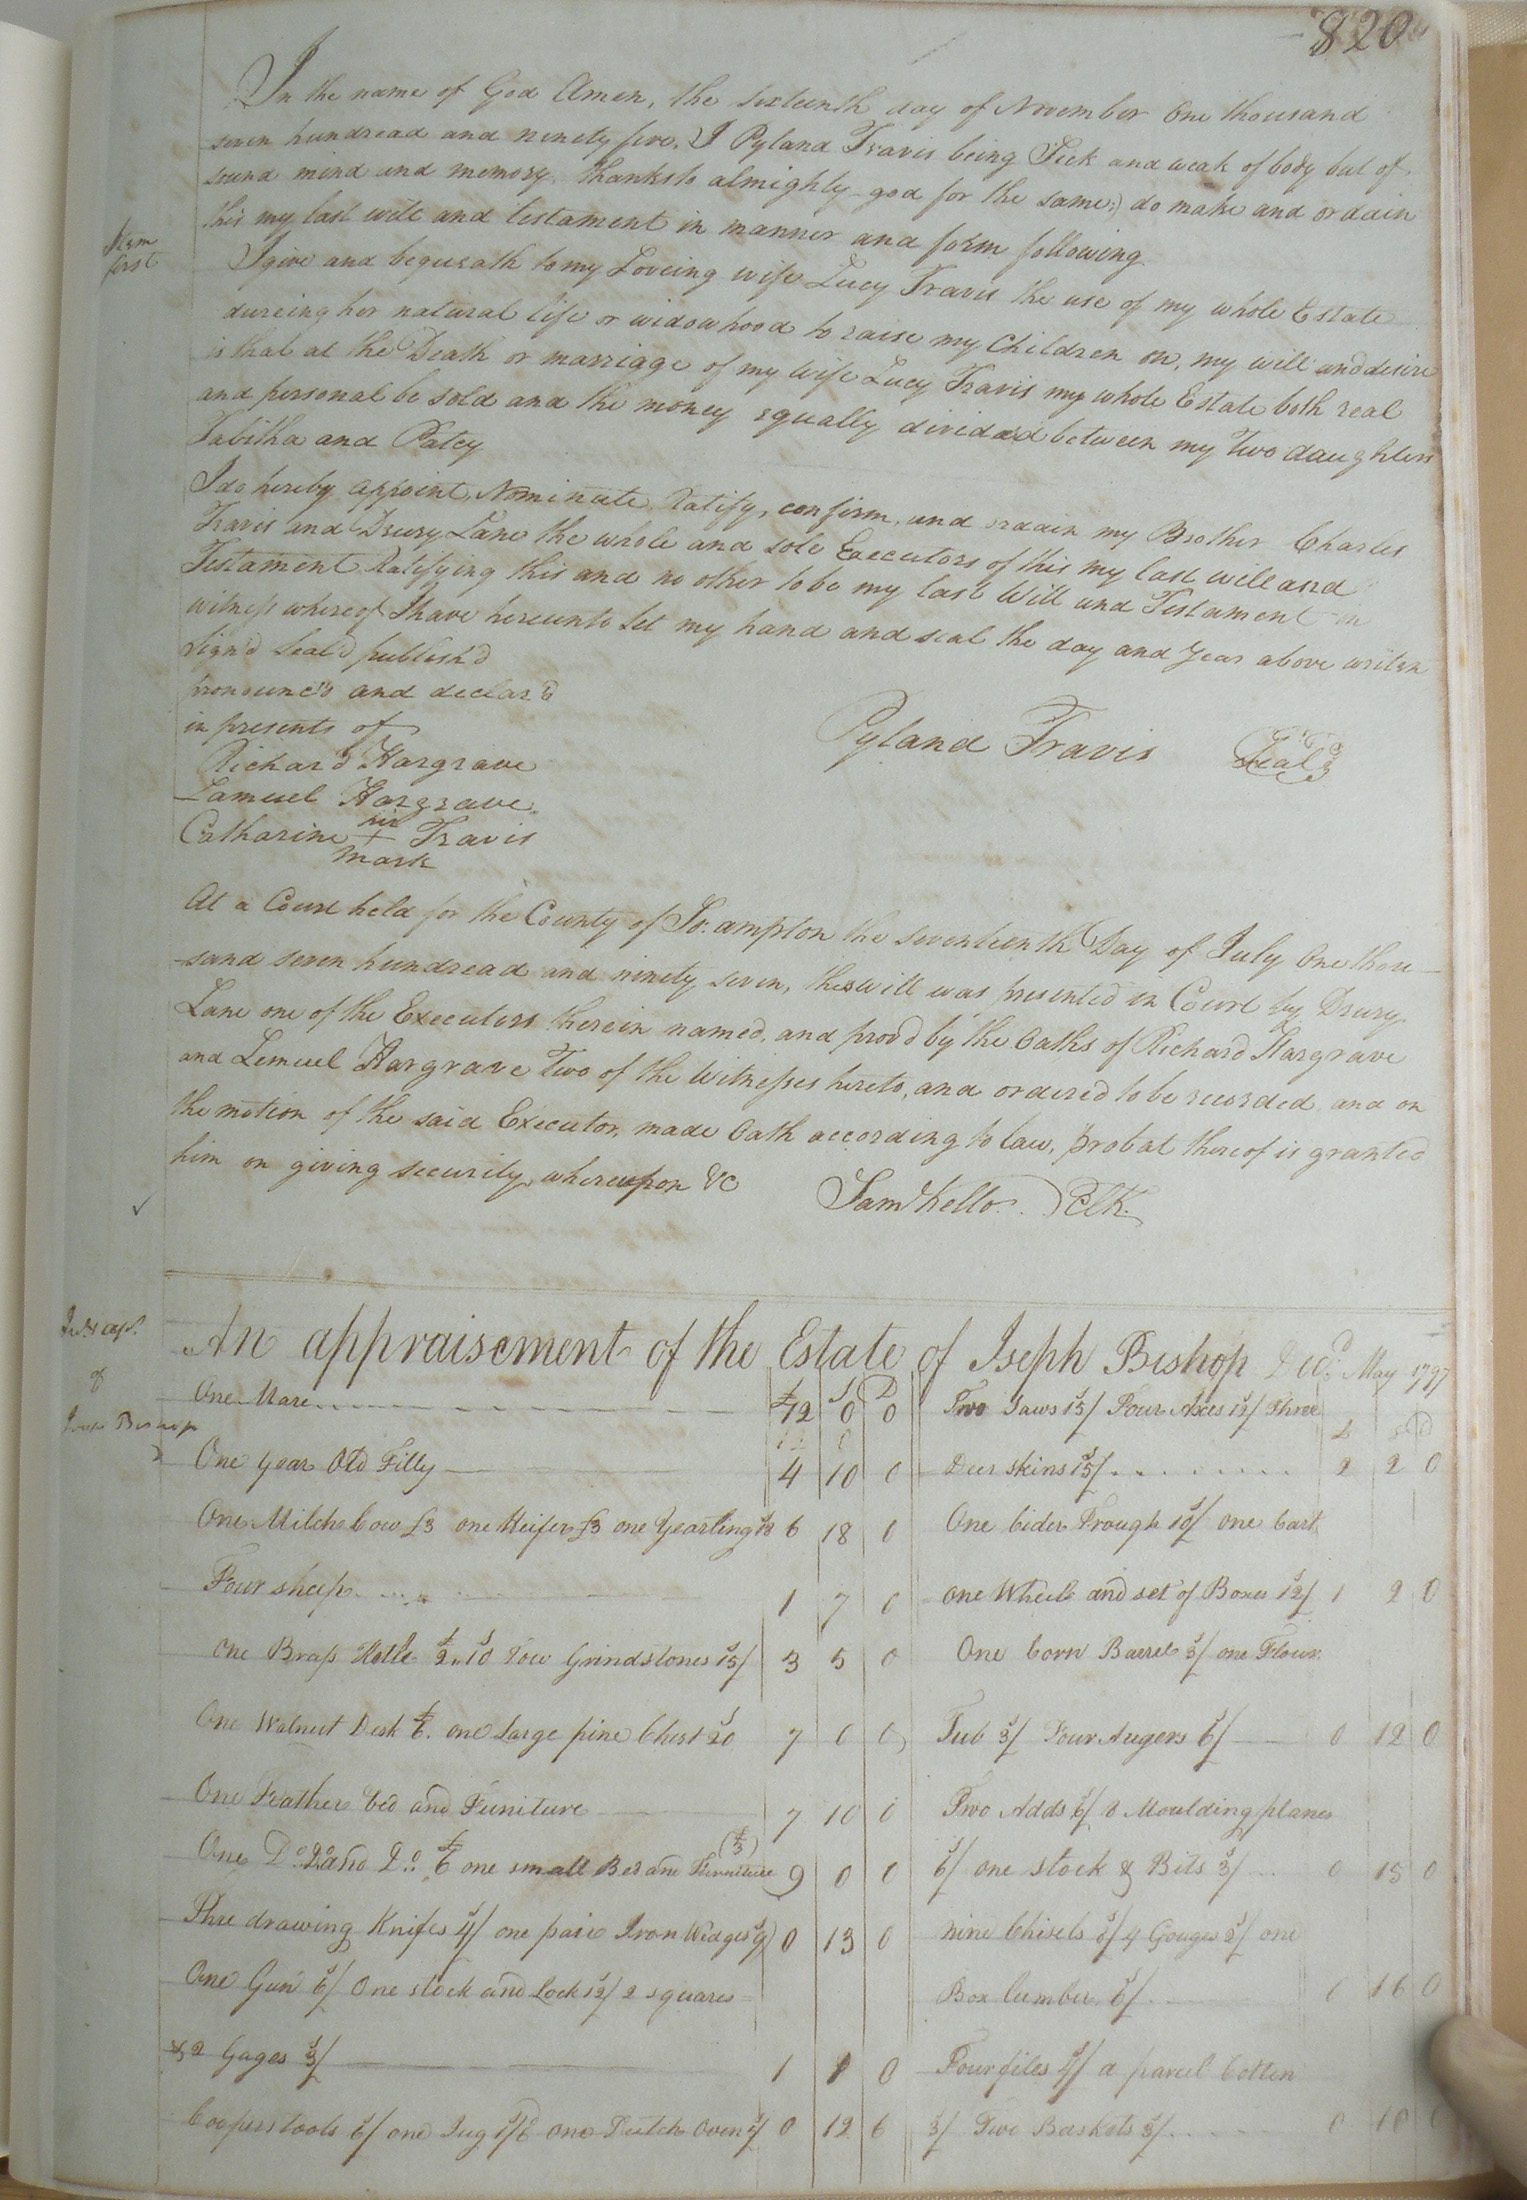 820
In the name of God Amen, the sixteenth day of November One thousand
seven hundread and ninety five, I Pyland Travis being Sick and weak of body but of
sound mind and memory, thanks to almighty god for the same;) do make and ordain
this my last will and testament in manner and form following
Item
first
I give and bequeath to my Loveing wife Lucy Travis the use of my whole Estate
dureing her natural life or widowhood to raise my Children on, my will and desire
is that at the Death or marriage of my wife Lucy Travis my whole Estate both real
and personal be sold and the money equally divided between my Two daughters
Tabitha and Patcy
I do hereby appoint, Nominate, Ratify, confirm, and ordain my Brother Charles
Travis and Drury Lane the whole and sole Executors of this my last will and
Testament Ratifying this and no other to be my last Will and Testament in
witness whereof I have hereunto Set my hand and seal the day and year above writen
Sign'd Seal'd publish'd
pronounc'd and declar'd
in presents of
Pyland Travis Seal
Richard Hargrave
Lamuel Hargrave
her
Catharine + Travis
mark
At a Court held for the County of So:ampton the seventeenth Day of July One thou-
sand seven hundread and ninety seven, this will was presented in Court by Drury
Lane one of the Executors therein named, and prov'd by the Oaths of Richard Hargrave
and Lemuel Hargrave Two of the Witnesses hereto, and ordered to be recorded, and on
the motion of the said Executor, made Oath according to law, probat thereof is granted
him on giving security, whereupon &c
Saml Kello. ClK.
of
An appraisement of the Estate of Joseph Bishop Decd. May 1797
£ S D
One Mare 12 0 0
One year Old Filly 4 10 0
One Milch Cow £3 one Heifer £3 one Yearling 18 6 18 0
Four sheep 1 7 0
One Brass Kettle £2..10 Two Grindstones 15/ 3 5 0
One Walnut Desk £6. one Large pine Chest 20 7 0 0
One Feather bed and Funiture 7 10 0
One Do. Do. and Do. £6 one small Bed and Furniture (£3) 9 0 0
Thre drawing Knifes 4/ one pair Iron Wedges 9/ 0 13 0
One Gun 6/ One stock and Lock 12/ 2 squares
& 2 Gages 3/ 1 1 0
Coopers tools 6/ one Jug 1/6 one Dutch Oven 5/ 0 12 6
Two Saws 15/ Four Axes 12/ Three
£ S D
Deer skins 15/ 2 2 0
One Cider Trough 10/ one Cart
One Wheel and set of Boxes 12/ 1 2 0
One Corn Barrel 3/ one Flour
Tub 3/ Four Augers 6/ 0 12 0
Two Adds 6/ 8 Moulding planes
6/ one stock & Bits 3/ 0 15 0
nine Chisels 8/ 4 Gouges 2/ one
Box Lumber 6/ 0 16 0
Four files 4/ a parcel Cotten
3/ Two Baskets 3/ 0 10 0